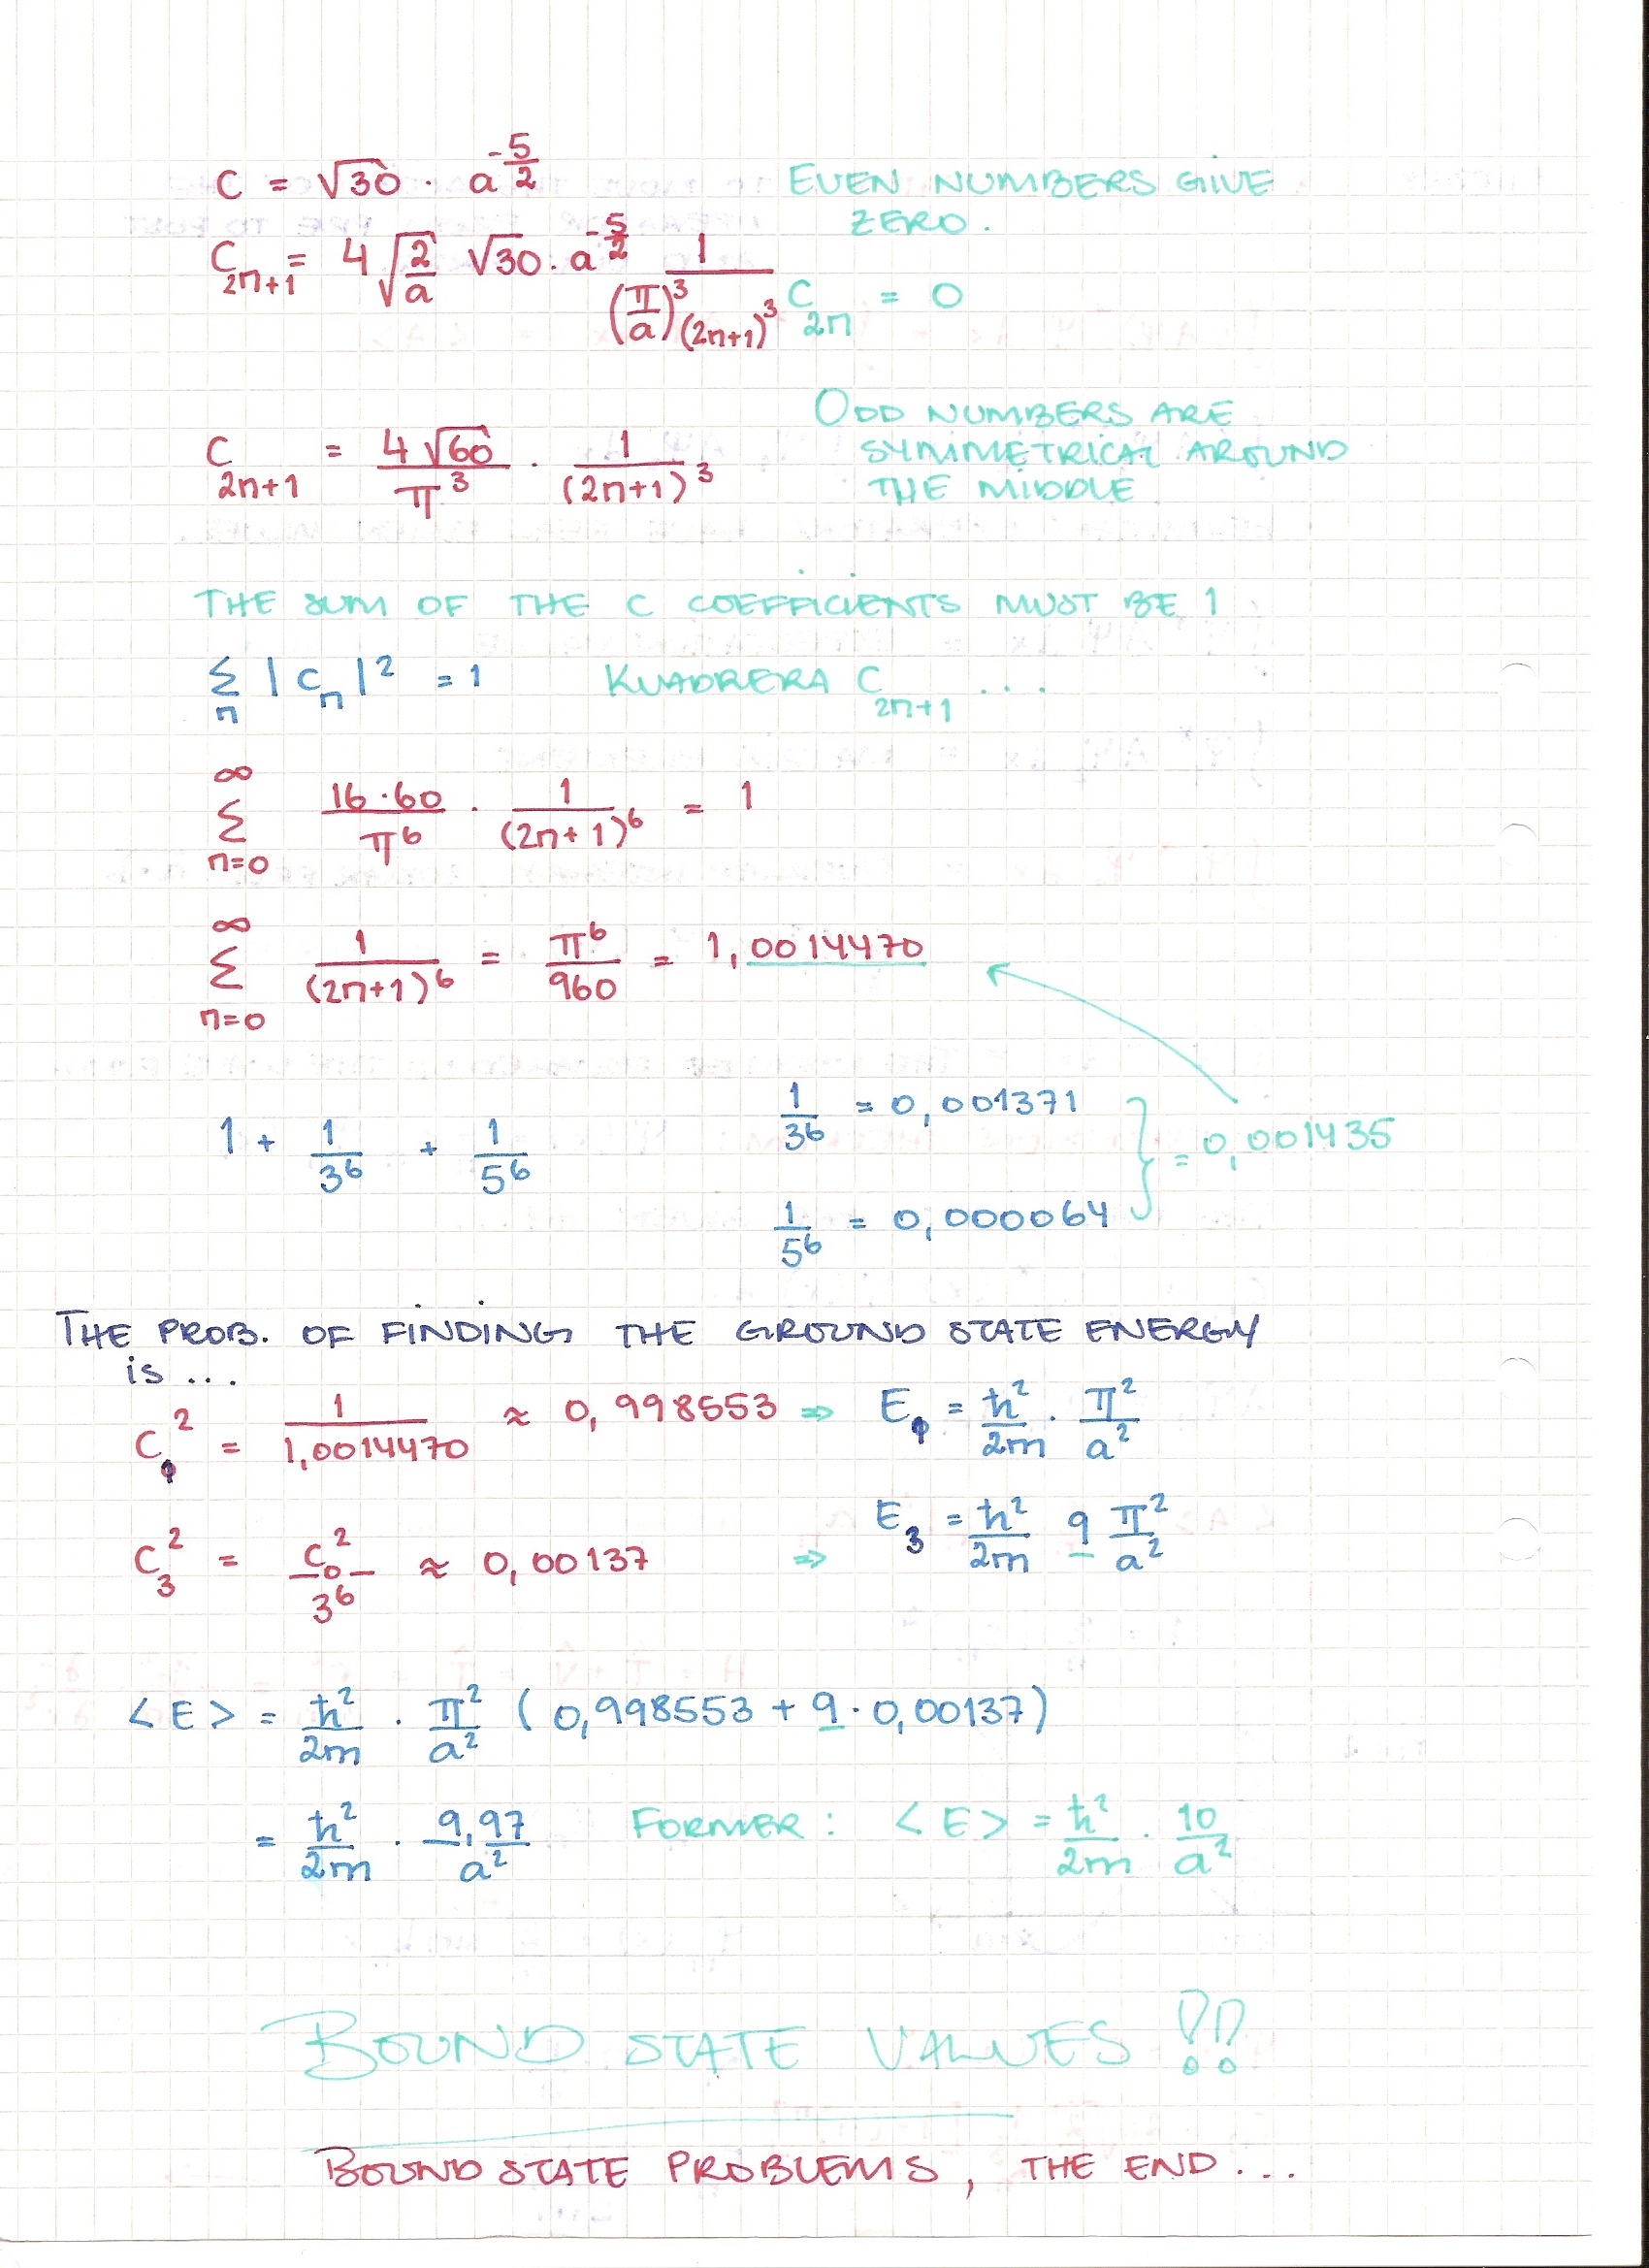 C = √30 · a^(-5/2)    EVEN NUMBERS GIVE
ZERO.
C_(2n+1) = 4 √(2/a) √30 · a^(-5/2) 1/((π/a)^3 (2n+1)^3)    C_(2n) = 0
ODD NUMBERS ARE
C_(2n+1) = 4√60/π^3 · 1/(2n+1)^3    SYMMETRICAL AROUND
THE MIDDLE
THE SUM OF THE C COEFFICIENTS MUST BE 1
Σ_n |C_n|^2 = 1    KVADRERA C_(2n+1) ...
Σ_(n=0)^∞ 16·60/π^6 · 1/(2n+1)^6 = 1
Σ_(n=0)^∞ 1/(2n+1)^6 = π^6/960 = 1,0014470
1 + 1/3^6 + 1/5^6    1/3^6 = 0,001371
1/5^6 = 0,000064 } = 0,001435
THE PROB. OF FINDING THE GROUND STATE ENERGY
is ...
C_1^2 = 1/1,0014470 ≈ 0,998553 ⇒ E_1 = ħ^2/2m · π^2/a^2
C_3^2 = C_0^2/3^6 ≈ 0,00137 ⇒ E_3 = ħ^2/2m 9 π^2/a^2
<E> = ħ^2/2m · π^2/a^2 (0,998553 + 9 · 0,00137)
= ħ^2/2m · 9,97/a^2    FORMER: <E> = ħ^2/2m · 10/a^2
BOUND STATE VALUES !!
BOUND STATE PROBLEMS, THE END...